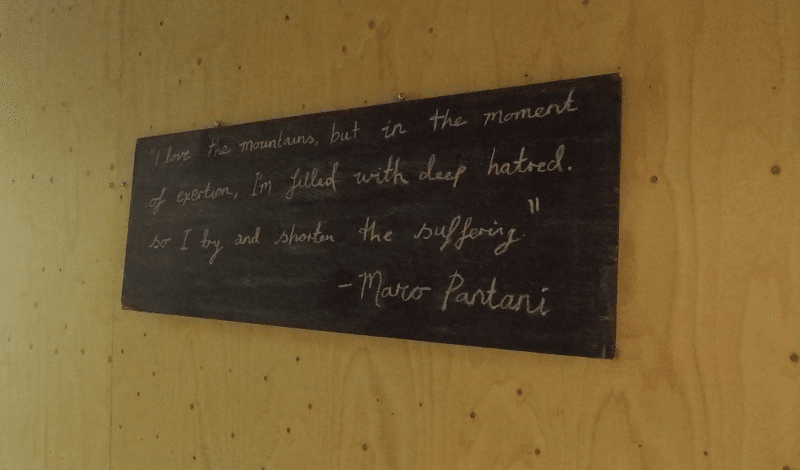 "I love the mountains, but in the moment
of exertion, I'm filled with deep hatred.
so I try and shorten the suffering."
- Marco Pantani